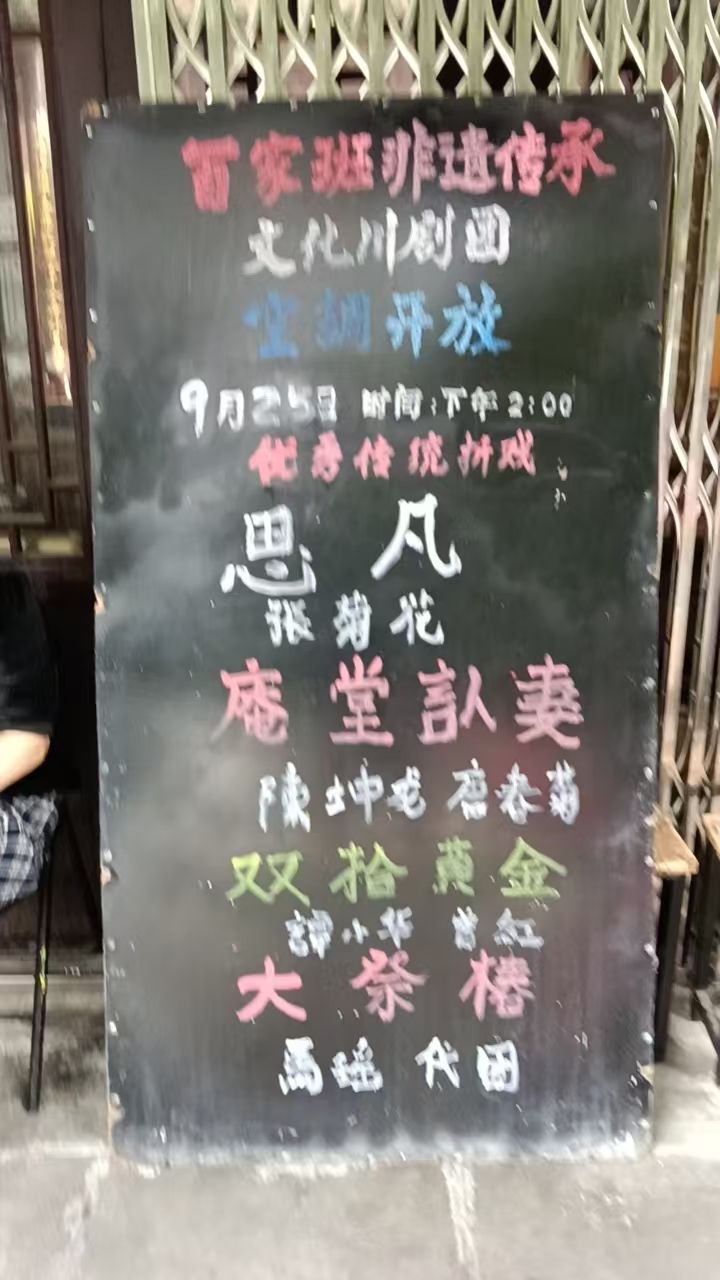 百家班非遗传承
文化川剧团
空調开放
9月25日 时间:下午2:00
优秀传统折戏
思凡
张菊花
庵堂訫妻
陳坤龙 唐春菊
双拾黄金
譚小华 曾紅
大祭樁
馬瑶 代团